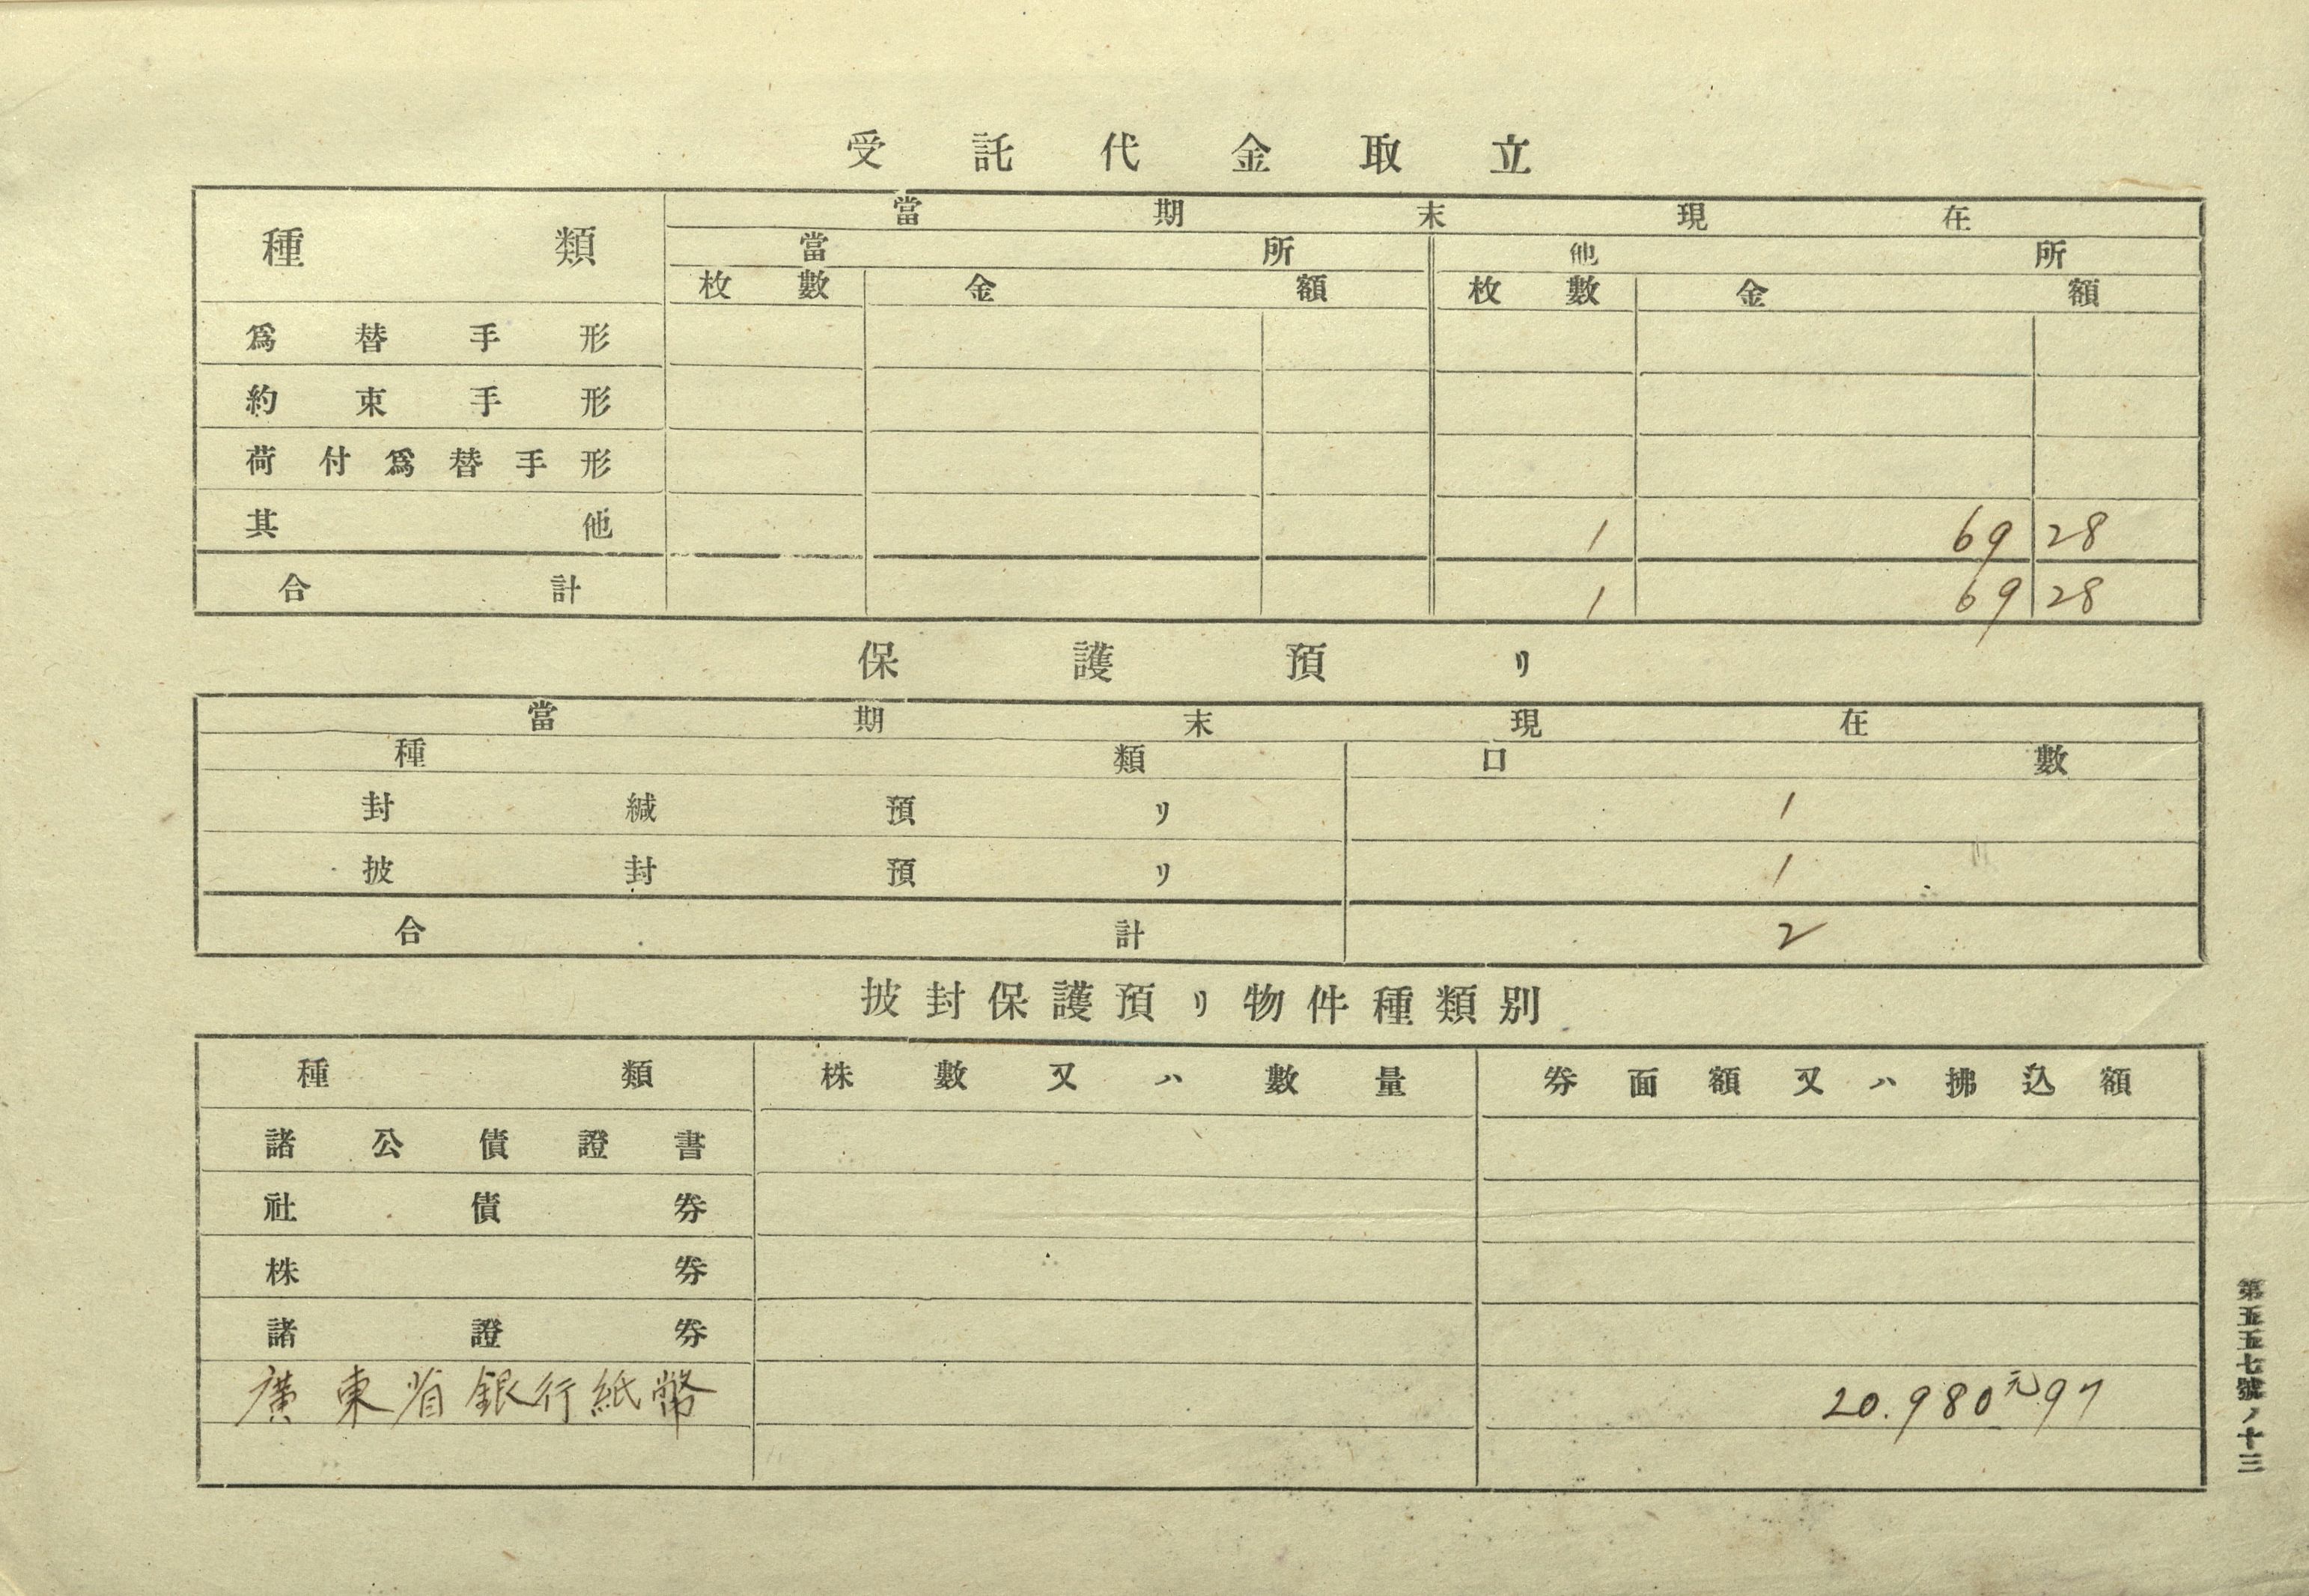 受託代金取立
種類 當期末現在
當所 他所
枚數 金額 枚數 金額
爲替手形
約束手形
荷付爲替手形
其他 1 69 28
合計 1 69 28
保護預リ
當期末現在
種類 口數
封緘預リ 1
披封預リ 1
合計 2
披封保護預リ物件種類別
種類 株數又ハ數量 券面額又ハ拂込額
諸公債證書
社債券
株券
諸證券
廣東省銀行紙幣 20.980元97
第五五七號ノ十三